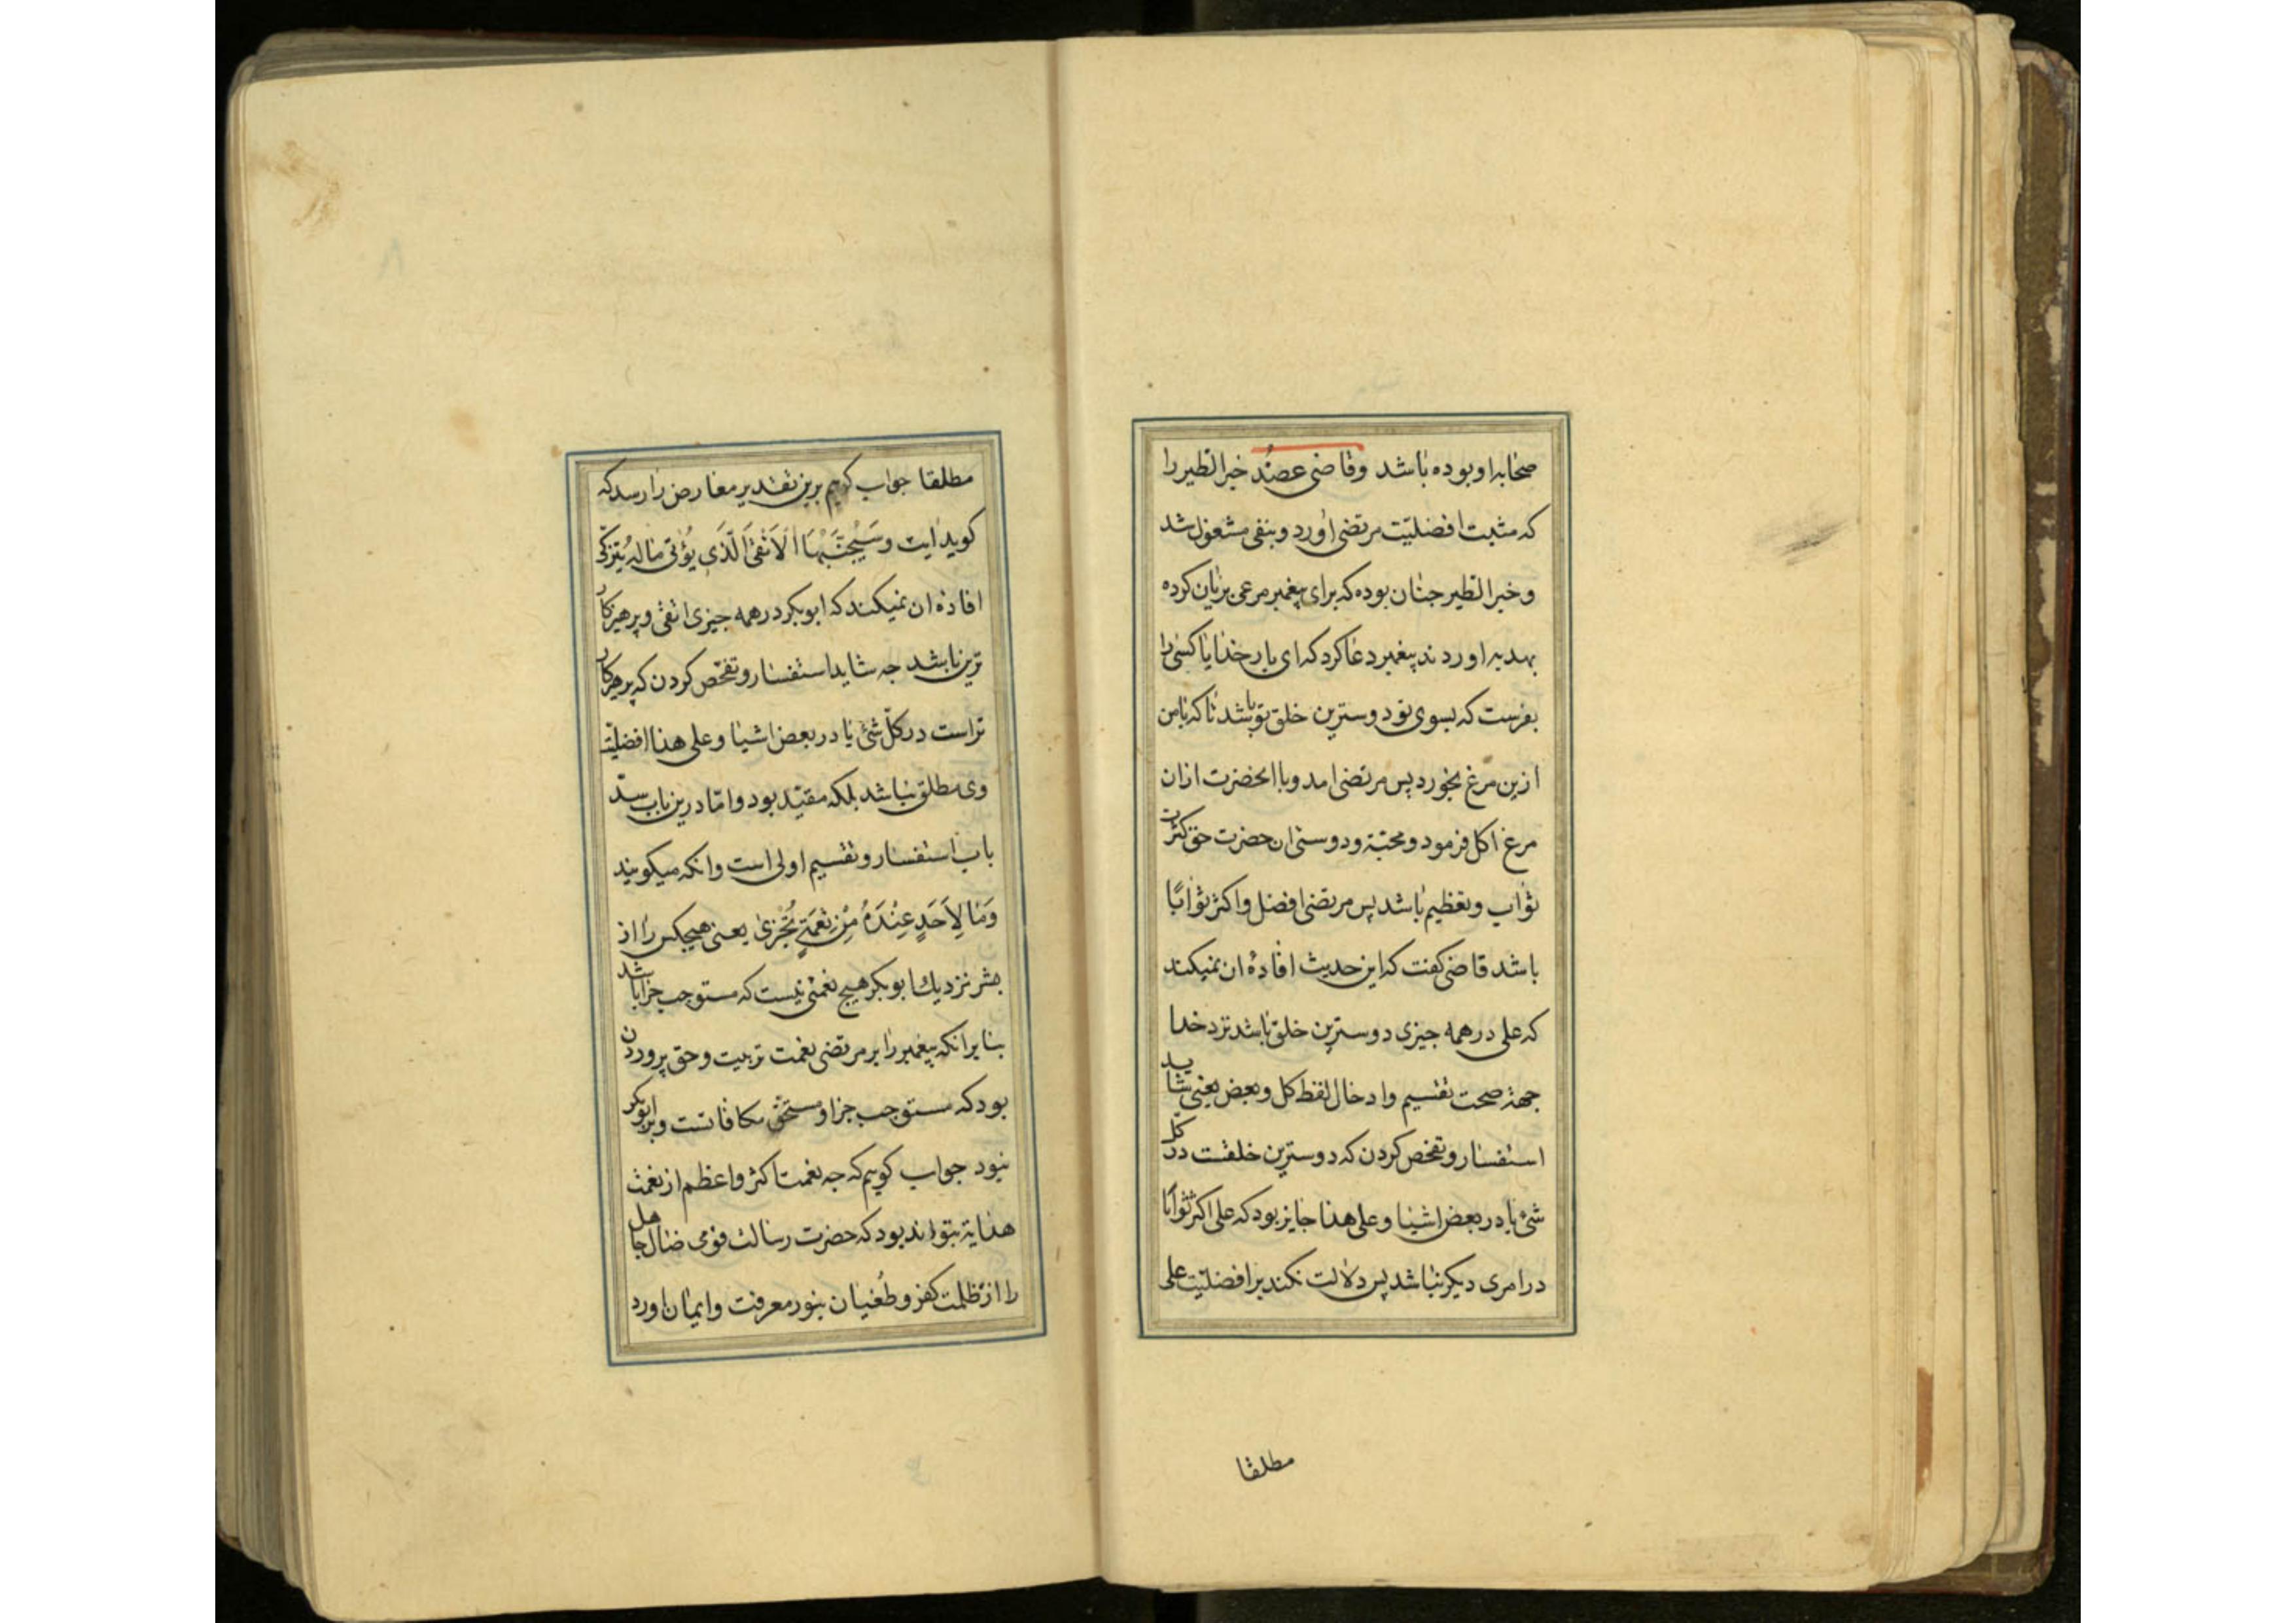 صحابه او بوده باشد وقاضی عضد خبر الطیر را
که مثبت افضلیّت مرتضی اورد وبنفی مشغول شد
وخبر الطیر جنان بوده که برای پیغمبر مرغی بریان کرده
بهدیه اوردند پیغمبر دعا کرد که ای بار خدایا کسی را
بفرست که بسوی تو دوسترین خلق تو باشد تا که بامن
ازین مرغ بخورد پس مرتضی امد وبا انحضرت ازان
مرغ اکل فرمود ومحبّة ودوستی ان حضرت حق کثرت
ثواب وتعظیم باشد پس مرتضی افضل واکثر ثوابًا
باشد قاضی کفت که این حدیث افادهٔ ان نمیکند
که علی در همه جیزی دوسترین خلق باشد نزد خدا
جهة صحت تقسیم وادخال لفظ کل وبعض یعنی شاید
استفسار وتفحص کردن که دوسترین خلقست در کل
شئ یا در بعض اشیا وعلی هذا جایز بود که علی اکثر ثوابًا
در امری دیکر نباشد پس دلالت نکند بر افضلیّت علی
مطلقا
مطلقا جواب کویم برین تقدیر معارض را رسد که
کوید ایت وَسَیُجَنَّبُهَا الْاَتْقَی الَّذِی یُؤتی مَالَهُ یَتَزَکّی
افادهٔ ان نمیکند که ابوبکر در همه جیزی اتقی وپرهیزکار
ترین باشد جه شاید استفسار وتفحّص کردن که پرهیزکار
تراست در کلّ شئ یا در بعض اشیا وعلی هذا افضلیّت
وی مطلق نباشد بلکه مقیّد بود وامّا درین باب سدّ
باب استفسار وتقسیم اولی است وانکه میکویند
وَمَا لِاَحَدٍ عِنْدَهُ مِنْ نِعْمَةٍ تُجْزیٰ یعنی هیجکس را از
بشر نزدیك ابوبکر هیج نعمتی نیست که مستوجب جزا باشد
بنا بر انکه پیغمبر را بر مرتضی نعمت تربیت وحق پروردن
بود که مستوجب جزا ومستحق مکافاتست وبر ابوبکر
نبود جواب کویم که جه نعمت اکثر واعظم از نعمت
هدایة بتواند بود که حضرت رسالت قومی ضال جاهل
را از ظلمت کفر وطُغیان بنور معرفت وایمان اورد